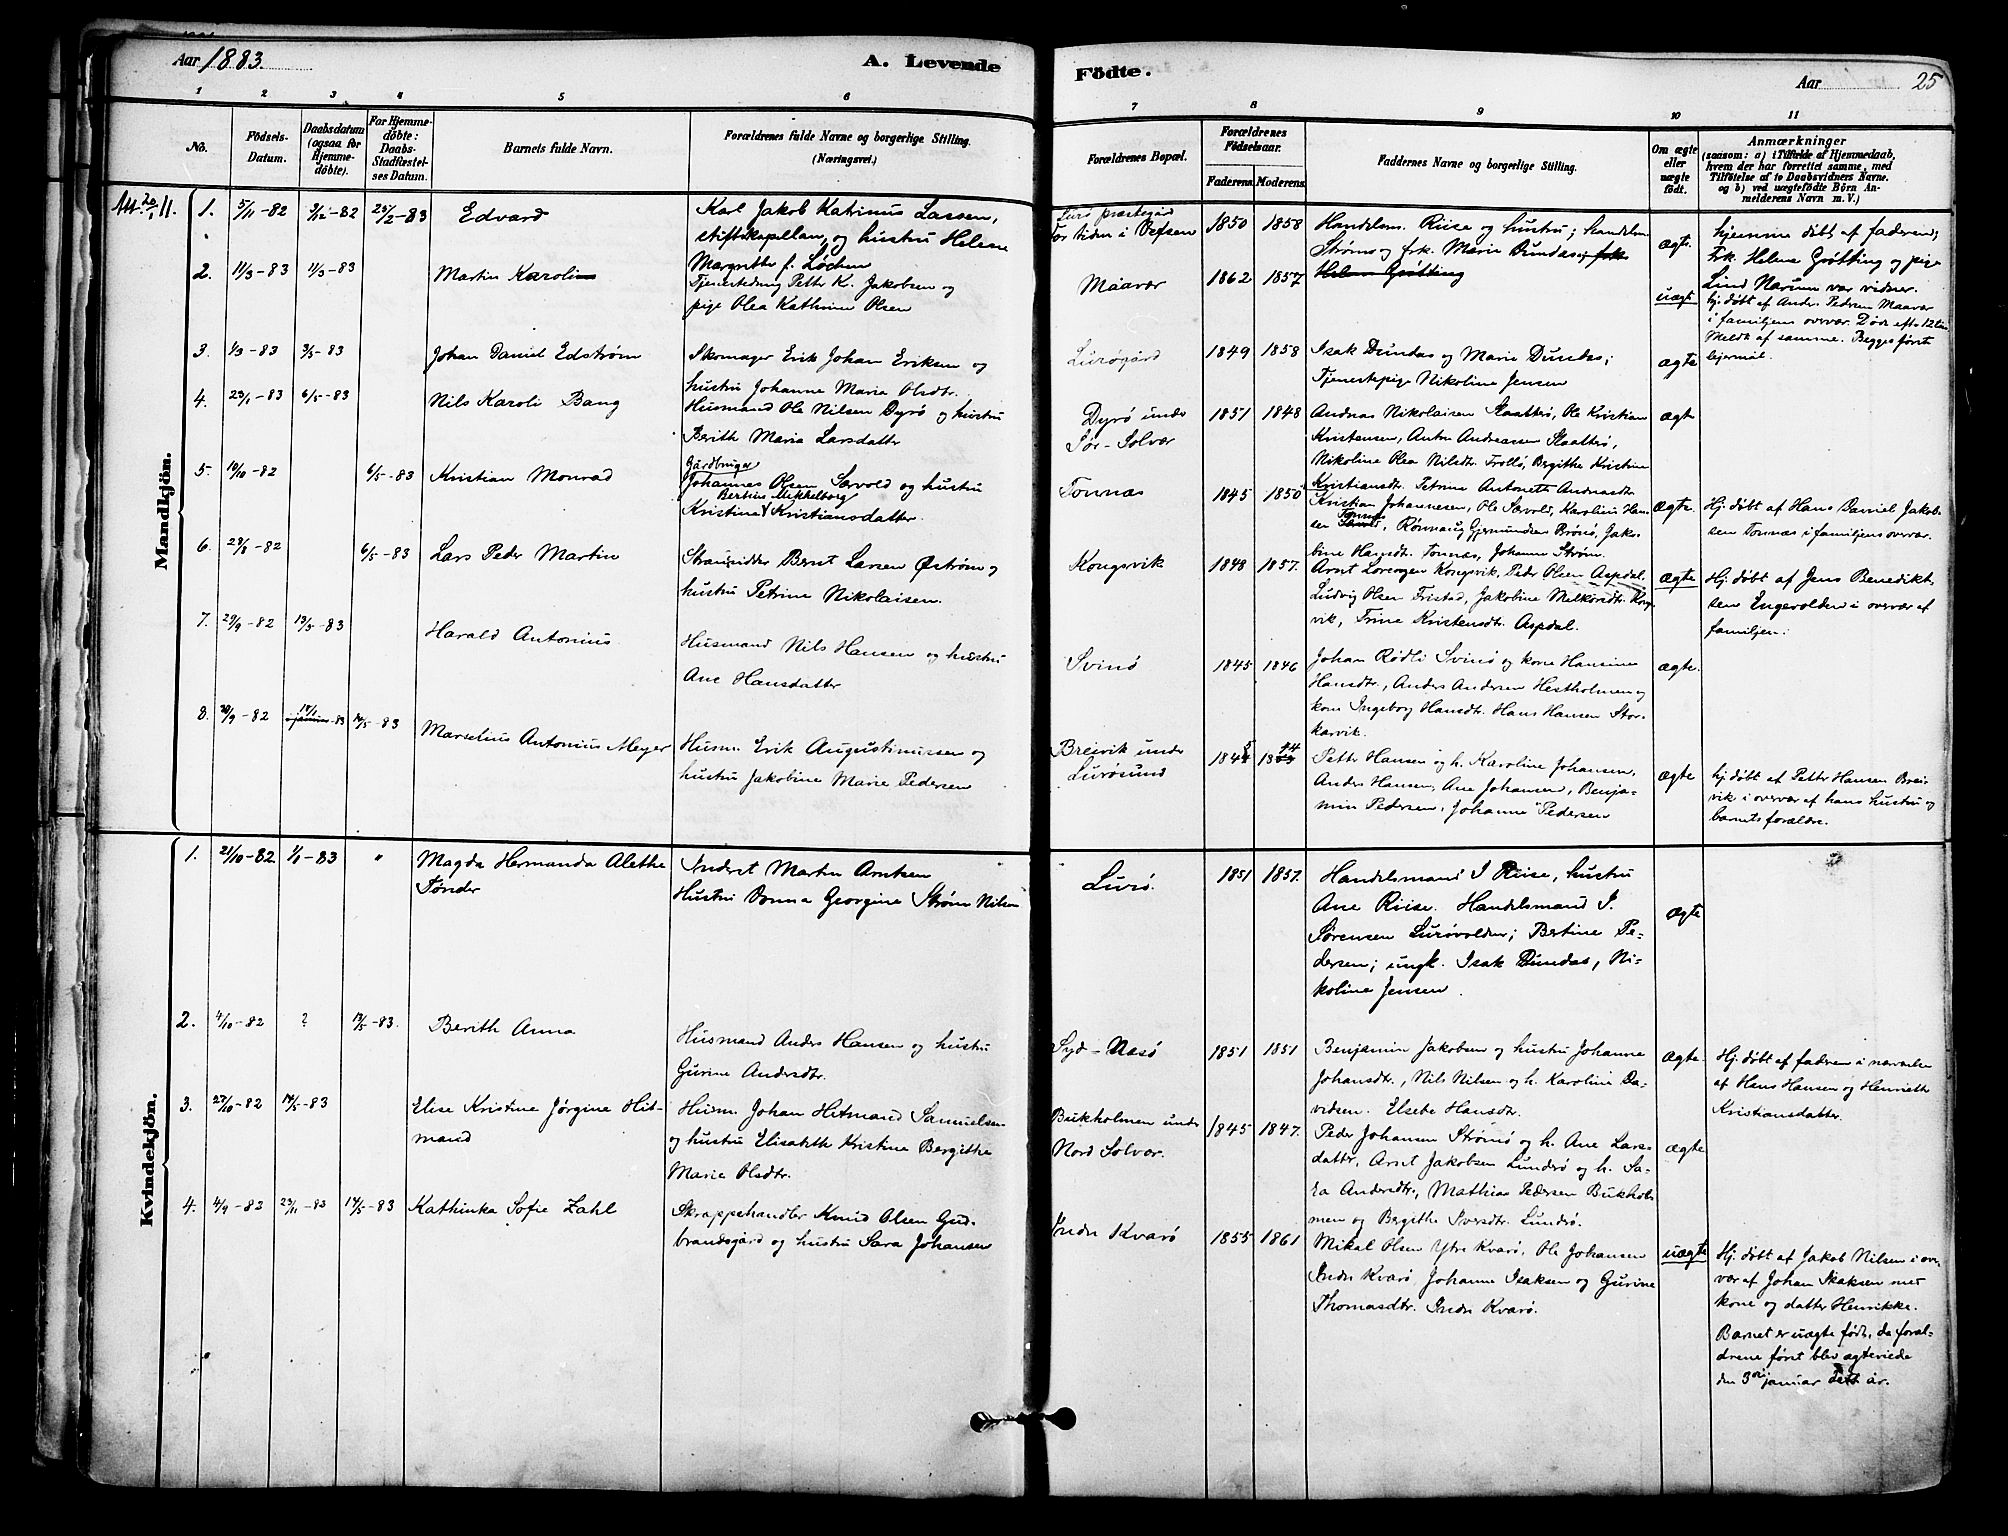 Aar 1883.
A. Levende
Födte.
Aar
25
1 2 3 4 5 6 7 8 9 10 11
No.
Födsels-Datum.
Daabsdatum (ogsaa for Hjemme-döbte).
For Hjemme-döbte: Daabs-Stadfæstel-ses Datum.
Barnets fulde Navn.
Forældrenes fulde Navne og borgerlige Stilling. (Næringsvei.)
Forældrenes Bopæl.
Forældrenes Födselsaar.
Faderens. Moderens.
Faddernes Navne og borgerlige Stilling.
Om ægte eller uægte födt.
Anmærkninger (saasom: a) i Tilfælde af Hjemmedaab, hvem der har forrettet samme, med Tilföielse af to Daabsvidners Navne. og b) ved uægtefödte Börn An-melderens Navn m. V.)
Mandkjön.
1. 5/11-82 3/12-82 25/2-83 Edvard
Karl Jakob Katrinus Lassen,
stiftskapellan, og hustru Helene
Margrethe f. Løchen
Lurø præstegård
for tiden i Vefsen
1850 1858
Handelsm. Riise og hustru; handelsm.
Strøm og frk. Marie Dundas; frk.
Helene Grøtting
ægte.
hjemme døbt af faderen;
Frk. Helene Grøtting og pige
Lind Narum var vidner.
2. 11/3-83 11/3-83 Martin Karolin
Tjenestedreng Petter K. Jakobsen og
pige Olea Kathrine Olsen
Maavær
1862 1857
uægt
hj. døbt af Anders Pedersen Maavær
i familjens overvær. Døde efter 12 tim.
Meldt af samme. Begges første
lejermål.
3. 1/3-83 3/5-83 Johan Daniel Edstrøm
Skomager Erik Johan Eriksen og
hustru Johanne Marie Olsdtr.
Lurøgård
1849 1858
Isak Dundas og Marie Dundas;
Tjenestepige Nikoline Jensen
ægte
4. 23/1-83 6/5-83 Nils Karoli Bang
Husmand Ole Nilsen Dyrø og hustru
Berith Maria Larsdatter
Dyrø under
Sør-Solvær
1851 1848
Andreas Nikolaisen Slaatterø, Ole Kristian
Kristensen, Anton Andreassen Slaatterø,
Nikoline Olea Nilsdtr. Trollø, Bergithe Kristine
Kristiansdtr. Petrine Antonette Andreasdtr.
ægte
5. 10/10-82 6/5-83 Kristian Monrad
Gårdbruger
Johannes Olsen Sævold og hustru
Bertine Mekkelborg
Kristine Kristiansdatter.
Tonnæs
1845 1850
Kristian Johannesen, Ole Sævold, Karolius Han-
sen Tonnæs, Rønnaug Gjermundsen Brøsø, Jako-
bine Hansdtr. Tonnæs, Johanne Strøm.
ægte.
Hj. døbt af Hans Daniel Jakob-
sen Tonnæs i familjens overvær.
6. 6/5-83 Lars Peder Martin
Strandsidder Bernt Larsen Østrøm og
hustru Petrine Nikolaisen.
Kongsvik
1848 1857.
Arnt Lorensen Kongsvik, Peder Olsen Aspdal.
Ludvig Olsen Fristad, Jakobine Melkiorsdtr. Kongs-
vik, Trine Kristensdtr. Aspdal.
ægte
Hj. døbt af Jens Benedikt-
sen Engevolden i overvær af
familjen.
7. 29/9-82 13/5-83 Harald Antonius
Husmand Nils Hansen og hustru
Ane Hansdatter
Svinø
1845 1846
Johan Rødli Svinø og kone Hansine
Hansdtr., Anders Andersen Hestholmen og
kone Ingeborg Hansdtr. Hans Hansen Stor-
karvik.
ægte.
8. 28/9-82 januar-83 14/5-83 Marselius Antonius Meyer
Husm. Erik Augustinussen og
hustru Jakobine Marie Pedersen
Breivik under
Lurøsund
Petter Hansen og h. Karoline Johansen,
Anders Hansen, Ane Johansen, Benja-
min Pedersen, Johanne Pedersen
ægte
hj. døbt af Petter Hansen Brei-
vik i overvær af hans hustru og
barnets forældre.
Kvindekjön.
1. 21/10-82 1/1-83 " Magda Hermanda Alethe
Tønder
Inderst Martin Arntsen
Hustru Donna Georgine Strøm Nilsen
Lurø.
1851 1857.
Handelsmand I Riise, hustru
Ane Riise. Handelsmand I.
Sørensen Lurøvolden; Bertine Pe-
dersen; ungk. Isak Dundas, Ni-
koline Jensen.
ægte
2. 4/10-82 ? 13/5-83. Berith Anna
Husmand Anders Hansen og hustru
Gurine Andersdtr.
Syd-Nesø
1851 1851
Benjamin Jakobsen og hustru Johanne
Johansdtr., Nils Nilsen og h. Karoline Da-
vidsen. Elsebe Hansdtr.
ægte.
Hj. døbt af faderen i nærværelse
af Hans Hansen og Henriette
Kristiansdatter.
3. 27/10-82 14/5-83 Elise Kristine Jørgine Hit-
mand
Husm. Johan Hitmand Samuelsen
og hustru Elisabeth Kristine Bergithe
Marie Olsdtr.
Bukholmen under
Nord Solvær.
1845 1847.
Peder Johansen Strømø og h. Ane Lars-
datter, Arnt Jakobsen Lunderø og h. Sa-
ra Andersdtr., Mathias Pedersen Bukhol-
men og Bergithe Iversdtr. Lunderø.
ægte
4. 4/9-82 23/11-83 14/5-83 Kathinka Sofie Zahl
Skrappehandler Knud Olsen Gud-
brandsgård og hustru Sara Johansen
Indre Kvarø
1855 1861
Mikal Olsen Ytre Kvarø, Ole Johansen
Indre Kvarø, Johanne Isaksen og Gurine
Thomasdtr. Indre Kvarø.
uægte
Hj. døbt af Jakob Nilsen i over-
vær af Johan Isaksen med
kone og datter Henrikke.
Barnet er uægte født, da foræl-
drene først blev ægteviede
den 3die januar dette år.